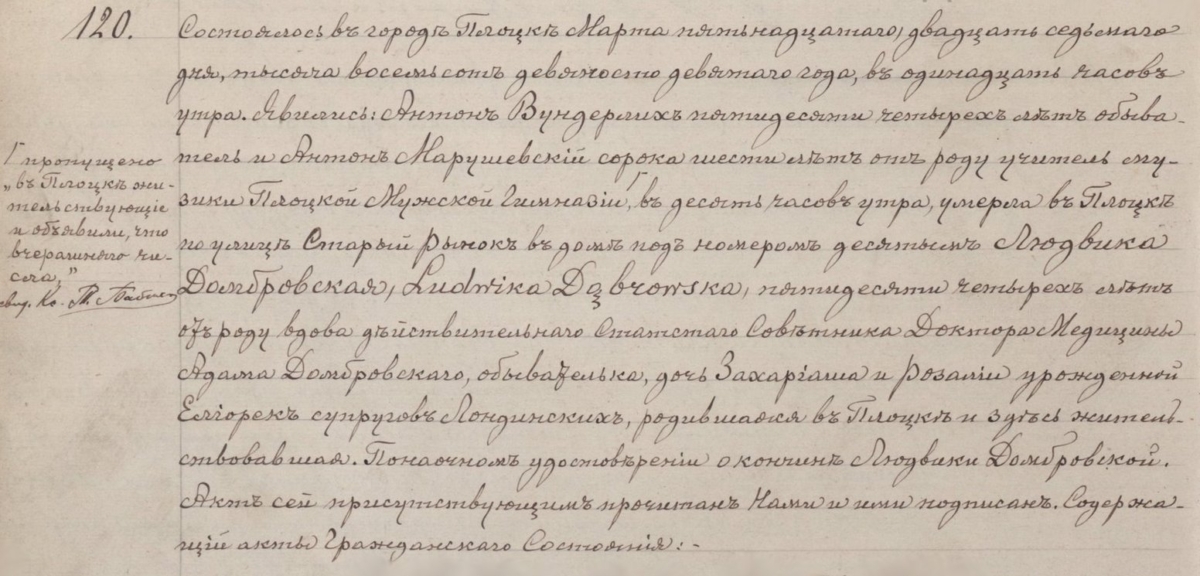 120.
Состоялось въ городѣ Плоцкѣ Марта пятьнадцатаго, двадцать седьмаго
дня, тысяча восемьсотъ девяносто девятаго года, въ одинадцать часовъ
утра. Явились: Антонъ Вундерлихъ пятидесяти четырехъ лѣтъ обыва-
тель и Антонъ Марушевскій сорока шести лѣтъ отъ роду учитель му-
зыки Плоцкой Мужской Гимназіи, въ десять часовъ утра, умерла въ Плоцкѣ
по улицѣ Старый Рынокъ въ домѣ подъ номеромъ десятымъ Людвика
Домбровская, Ludwika Dąbrowska, пятидесяти четырехъ лѣтъ
отъ роду вдова дѣйствительнаго Статскаго Совѣтника Доктора Медицины
Адама Домбровскаго, обывателька, дочь Захаріаша и Розаліи урожденной
Елгіорекъ супруговъ Лондинскихъ, родившаяся въ Плоцкѣ и здѣсь житель-
ствовавшая. По наочномъ удостовѣреніи о кончинѣ Людвики Домбровской.
Актъ сей присутствующимъ прочитан Нами и ими подписанъ. Содержа-
щій акты Гражданскаго Состоянія:-
Г пропущено
„въ Плоцкѣ жи-
тельствующіе
и объявили, что
вчерашняго чи-
сла,"